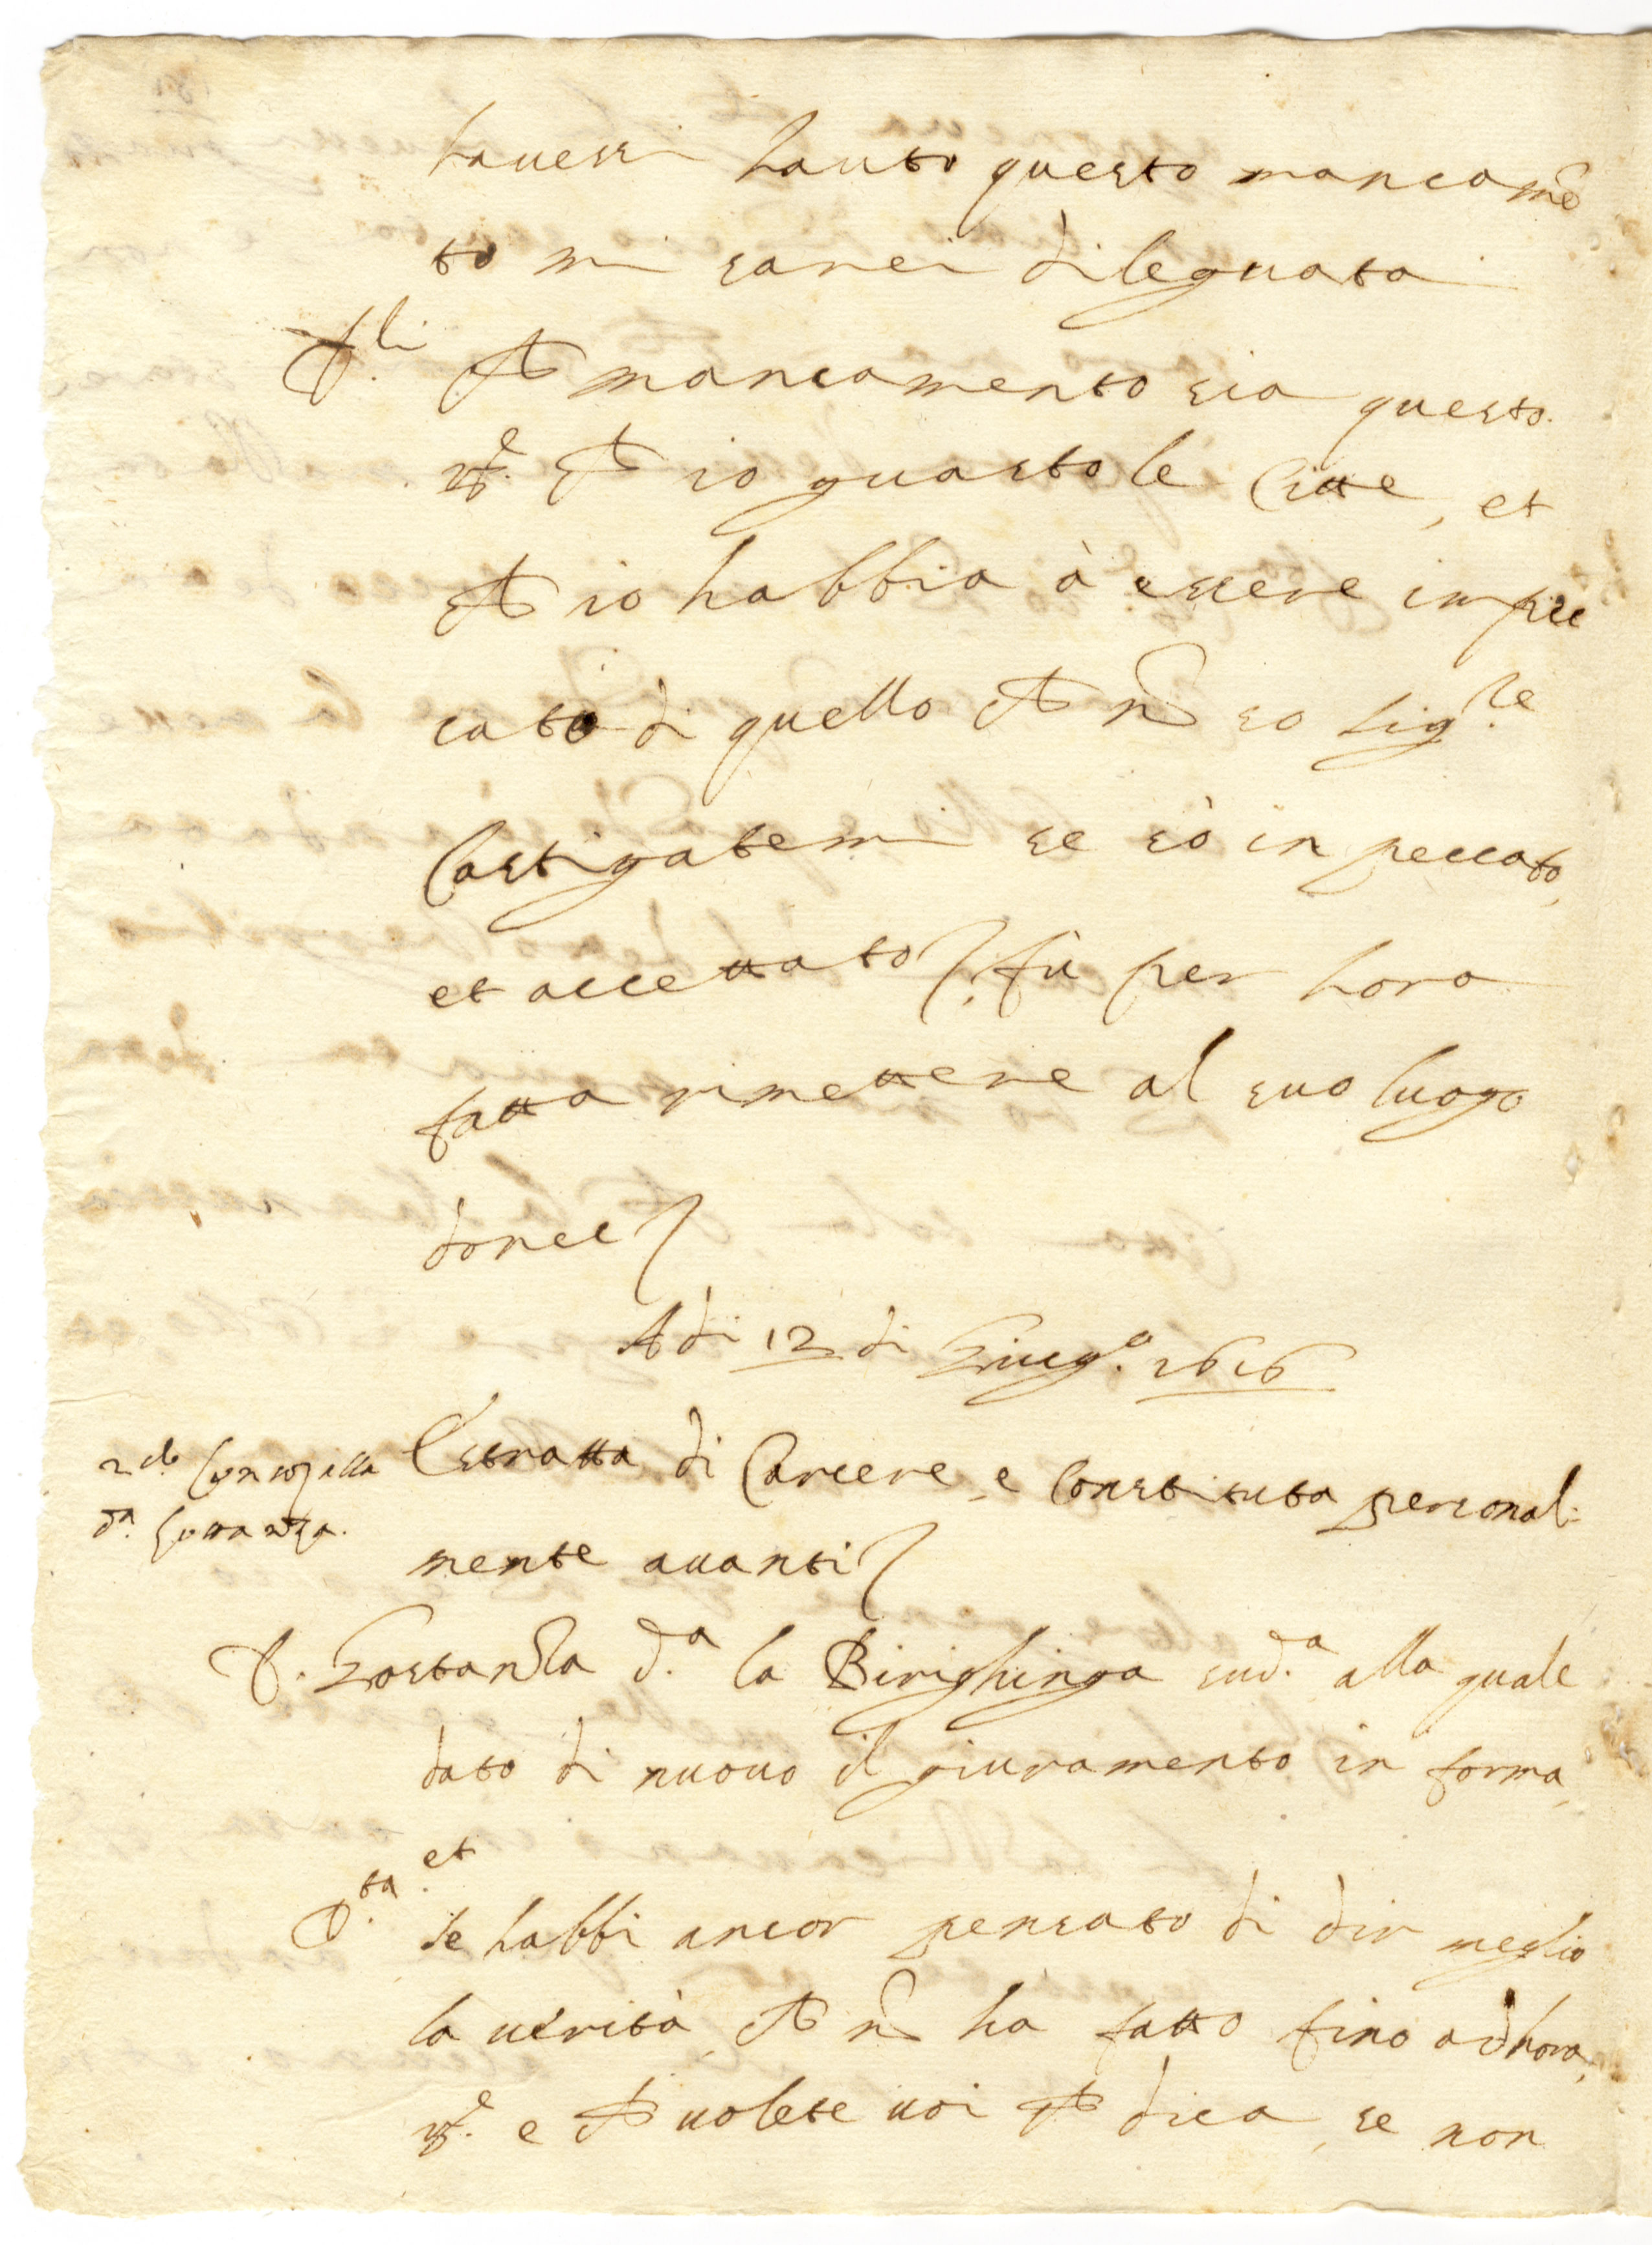 havessi hauto questo mancamẽ
to mi sarei dileguata
D.li Che mancamento sia questo.
R.e Che io guasto le Citte, et
che io habbia à essere impic
cata di quello che nõ so sig.re
Castigatemi se sò in peccato,
et accettato fù per hora
fatta rimettere al suo luogo
donec
Adi 12 di Giug.o 1616
2.do
d.a Gostanza.
Estratta di Carcere, e Constituta personal:
mente avanti
D. Gostanza d.a la Birighinga sud.a alla quale
dato di nuovo il giuramento in forma,
et
D.ta Se habbi ancor pensato di dir meglio
la verità, che nõ ha fatto fino adhora,
R.e e che volete voi che dica, se non